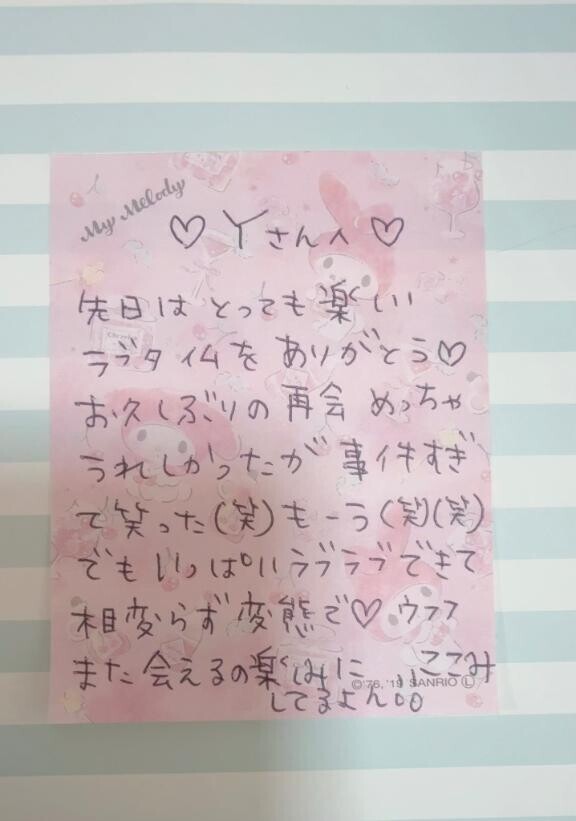 My Melody
♡ Yさんへ ♡
先日は とっても 楽しい
ラブタイムを ありがとう♡
お久しぶりの 再会 めっちゃ
うれしかったが 事件すぎ
て 笑った(笑) もーう(笑)(笑)
でも いっぱい ラブラブできて
相変らず 変態で♡ ウフフ
また 会えるの楽しみに ここみ
してるよん
©'76, '19 SANRIO Ⓛ